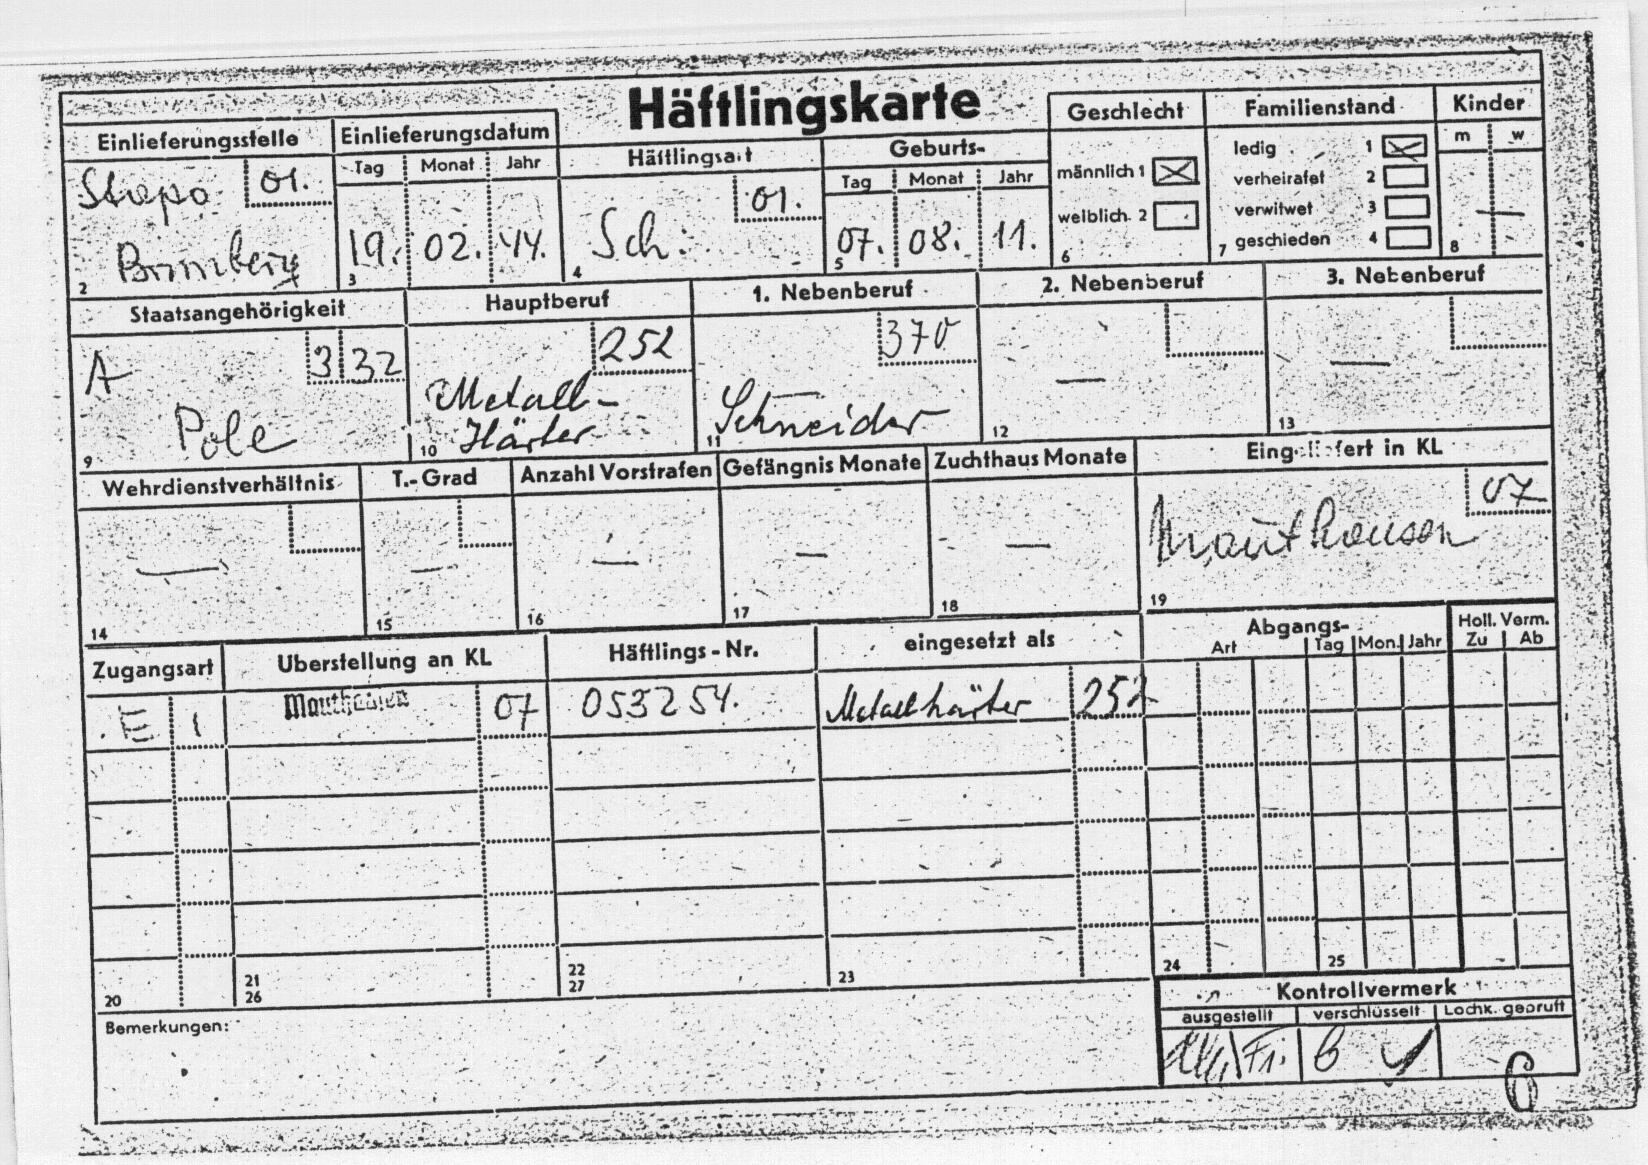 Häftlingskarte
Einlieferungsstelle
Stapo 01.
Bromberg
2
Einlieferungsdatum
Tag Monat Jahr
19. 02. 44.
3
Häftlingsart
01.
Sch.
4
Geburts-
Tag Monat Jahr
07. 08. 11.
5
Geschlecht
männlich 1
weiblich 2
6
Familienstand
ledig 1
verheiratet 2
verwitwet 3
geschieden 4
7
Kinder
m w
—
8
Staatsangehörigkeit
A 3 32
Pole
9
Hauptberuf
252
Metall-
Härter
10
1. Nebenberuf
370
Schneider
11
2. Nebenberuf
—
12
3. Nebenberuf
—
13
Wehrdienstverhältnis
—
14
T.-Grad
—
15
Anzahl Vorstrafen
—
16
Gefängnis Monate
—
17
Zuchthaus Monate
—
18
Eingeliefert in KL
07
Mauthausen
19
Zugangsart
E 1
20
Überstellung an KL
Mauthausen 07
21
26
Häftlings-Nr.
053254.
22
27
eingesetzt als
Metallhärter 252
23
Abgangs-
Art Tag Mon. Jahr
24 25
Holl. Verm.
Zu Ab
Bemerkungen:
Kontrollvermerk
ausgestellt verschlüsselt Lochk. geprüft
Fi. 6
6